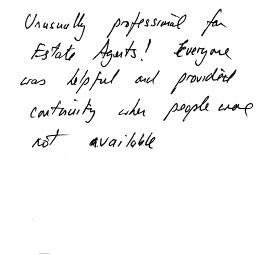 Unusually professional for
Estate Agents! Everyone
was helpful and provided
continuity when people were
not available